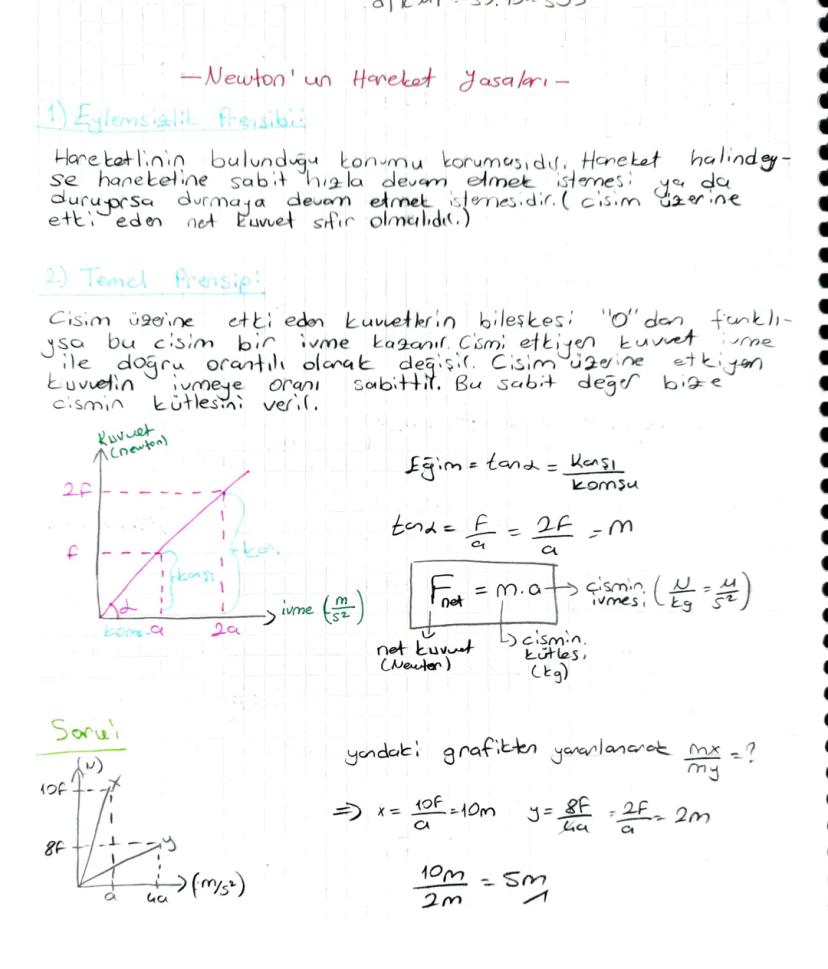 -Newton'un Hareket Yasaları-
1) Eylemsizlik Prensibi:
Hareketlinin bulunduğu konumu korumasıdır. Hareket halindey-
se hareketine sabit hızla devam etmek istemesi ya da
duruyorsa durmaya devam etmek istemesidir. (cisim üzerine
etki eden net kuvvet sıfır olmalıdır.)
2) Temel Prensip:
Cisim üzerine etki eden kuvvetlerin bileşkesi "0"dan farklı-
ysa bu cisim bir ivme kazanır. Cismi etkiyen kuvvet ivme
ile doğru orantılı olarak değişir. Cisim üzerine etkiyen
kuvvetin ivmeye oranı sabittir. Bu sabit değer bize
cismin kütlesini verir.
Kuvvet
(newton)
2F
F
karşı
kar.
α
kom.
a
2a
ivme (m/s²)
Eğim = tanα = Karşı/komşu
tanα = F/a = 2F/a = m
Fnet = m.a → cismin ivmesi (N/kg = M/s²)
net kuvvet
(Newton)
cismin
kütlesi
(kg)
Soru:
(N)
10F
x
8F
y
a
4a
(m/s²)
yandaki grafikten yararlanarak mx/my = ?
⇒ x = 10F/a = 10m y = 8F/4a = 2F/a = 2m
10m/2m = 5m